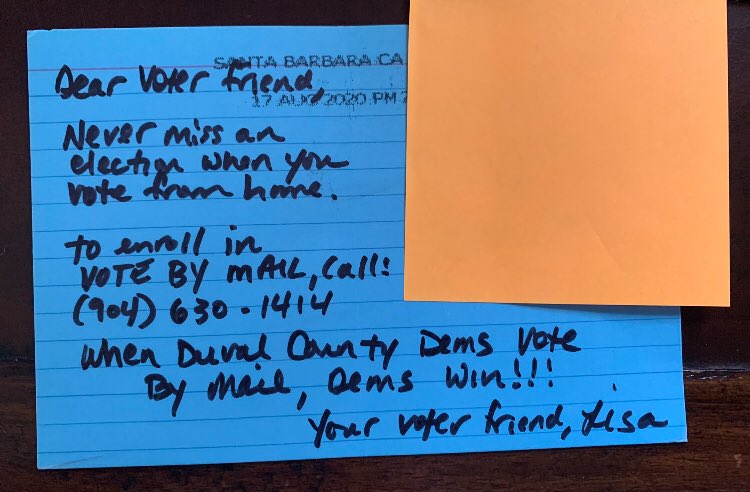 SANTA BARBARA CA
Dear Voter friend,
17 AUG 2020 PM
Never miss an
election when you
vote from home.
to enroll in
VOTE BY MAIL, call:
(904) 630-1414
When Duval County Dems Vote
By Mail, Dems Win!!!
Your voter friend, Lisa